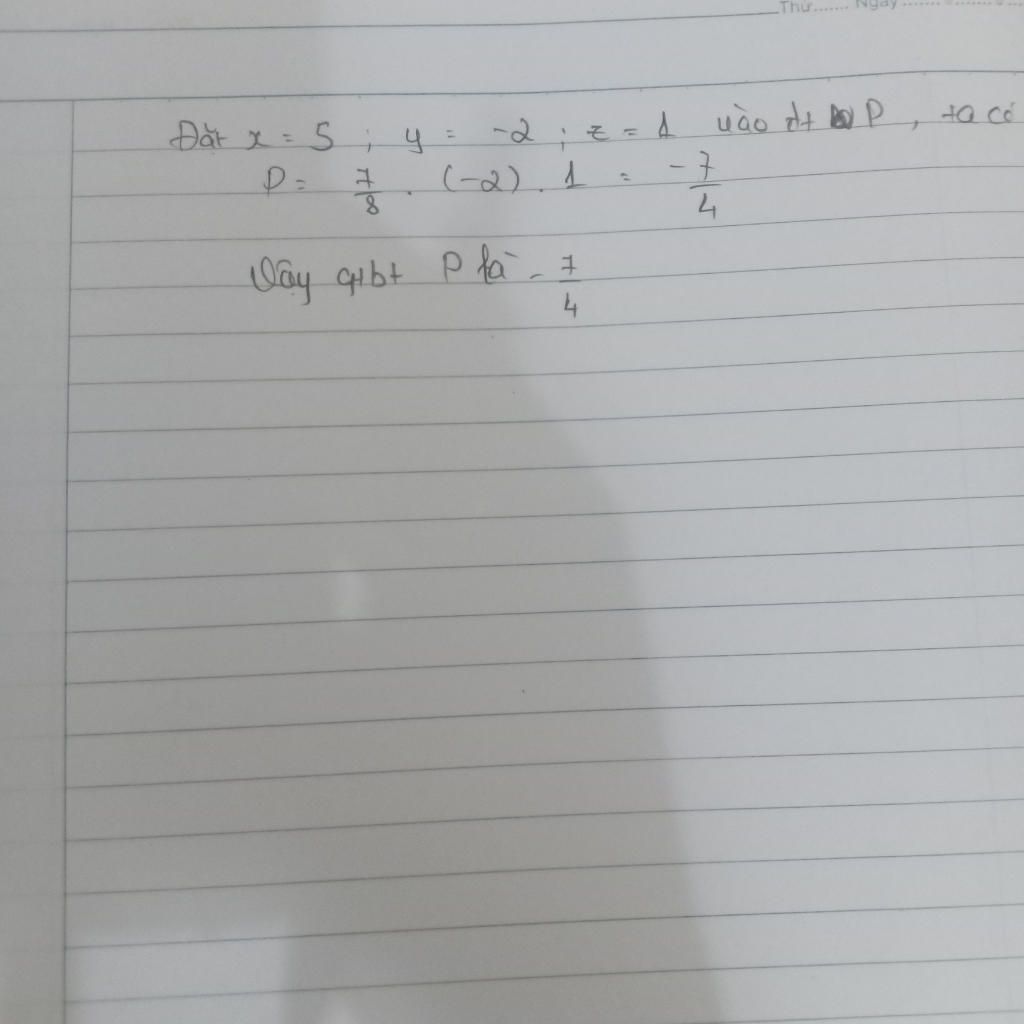 Thứ....... Ngày
Đặt x = 5 ; y = -2 ; z = 1 vào đt P , ta có
P = 7/8 . (-2) . 1 = -7/4
Vậy gtbt P là - 7/4